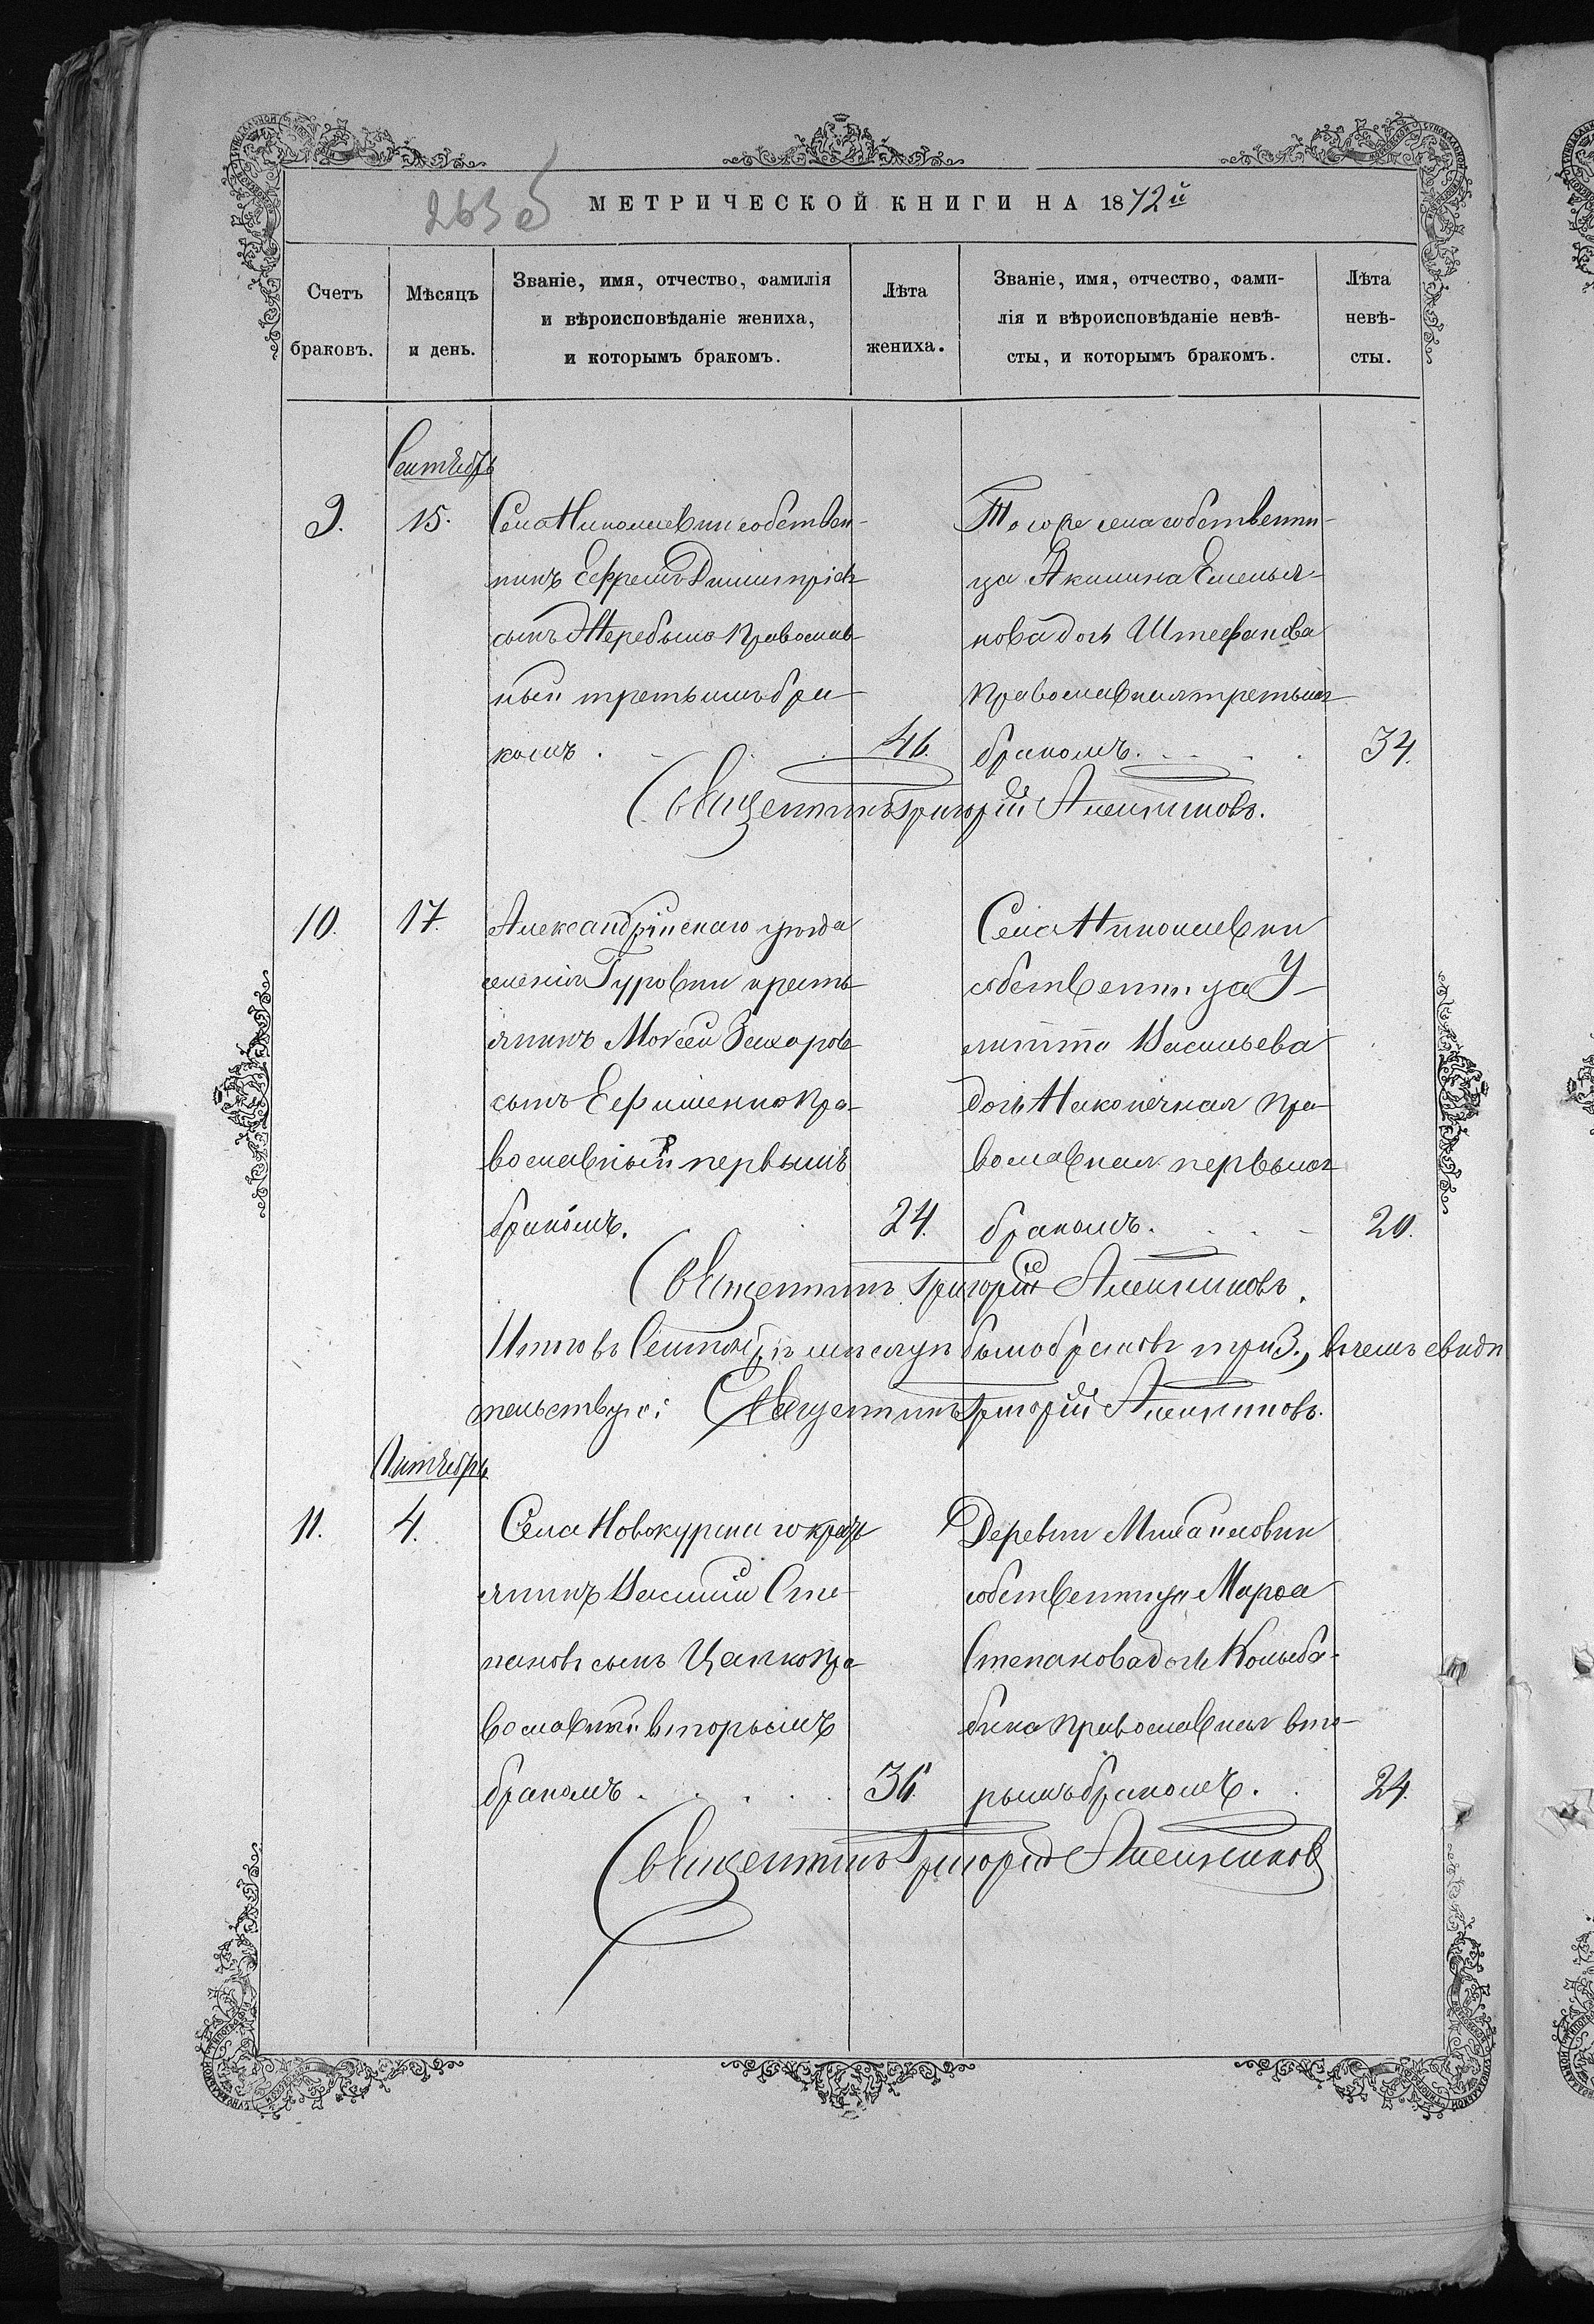 263 об
МЕТРИЧЕСКОЙ КНИГИ НА 1872й
Счетъ браковъ.
Мѣсяцъ и день.
Званіе, имя, отчество, фамилія
и вѣроисповѣданіе жениха,
и которымъ бракомъ.
Лѣта
жениха.
Званіе, имя, отчество, фами-
лія и вѣроисповѣданіе невѣ-
сты, и которымъ бракомъ.
Лѣта
невѣ-
сты.
Сентябрь
9.
15.
Села Николаевки собствен-
никъ Ефремъ Димитріевъ
сынъ Жеребыло православ-
ный третьимъ бра-
комъ
46.
Того же села собственни-
ца Акилина Емелья-
нова дочь Штефанова
православная третьимъ
бракомъ.
34.
Священникъ Григорій
10.
17.
Александрійскаго уѣзда
селенія Гуровки кресть-
янинъ Моѵсей Захаровъ
сынъ Ефименко пра-
вославный первымъ
бракомъ.
24.
Села Николаевки
собственница У-
литта Васильева
дочь Наконечная пра-
вославная первымъ
бракомъ.
20.
Священникъ Григорій
Итого въ Сентябрѣ мѣсяцѣ было браковъ три 3., въ чемъ свидѣ
тельствую: Священникъ Григорій
Октябрь
11.
4.
Села Новокурска го крест
янинъ Василій Сте-
пановъ сынъ Цапко пра
вославный вторымъ
бракомъ
36.
Деревни Михайловки
собственница Марѳа
Степанова дочь
православная вто-
рымъ бракомъ.
24.
Священникъ Григорій